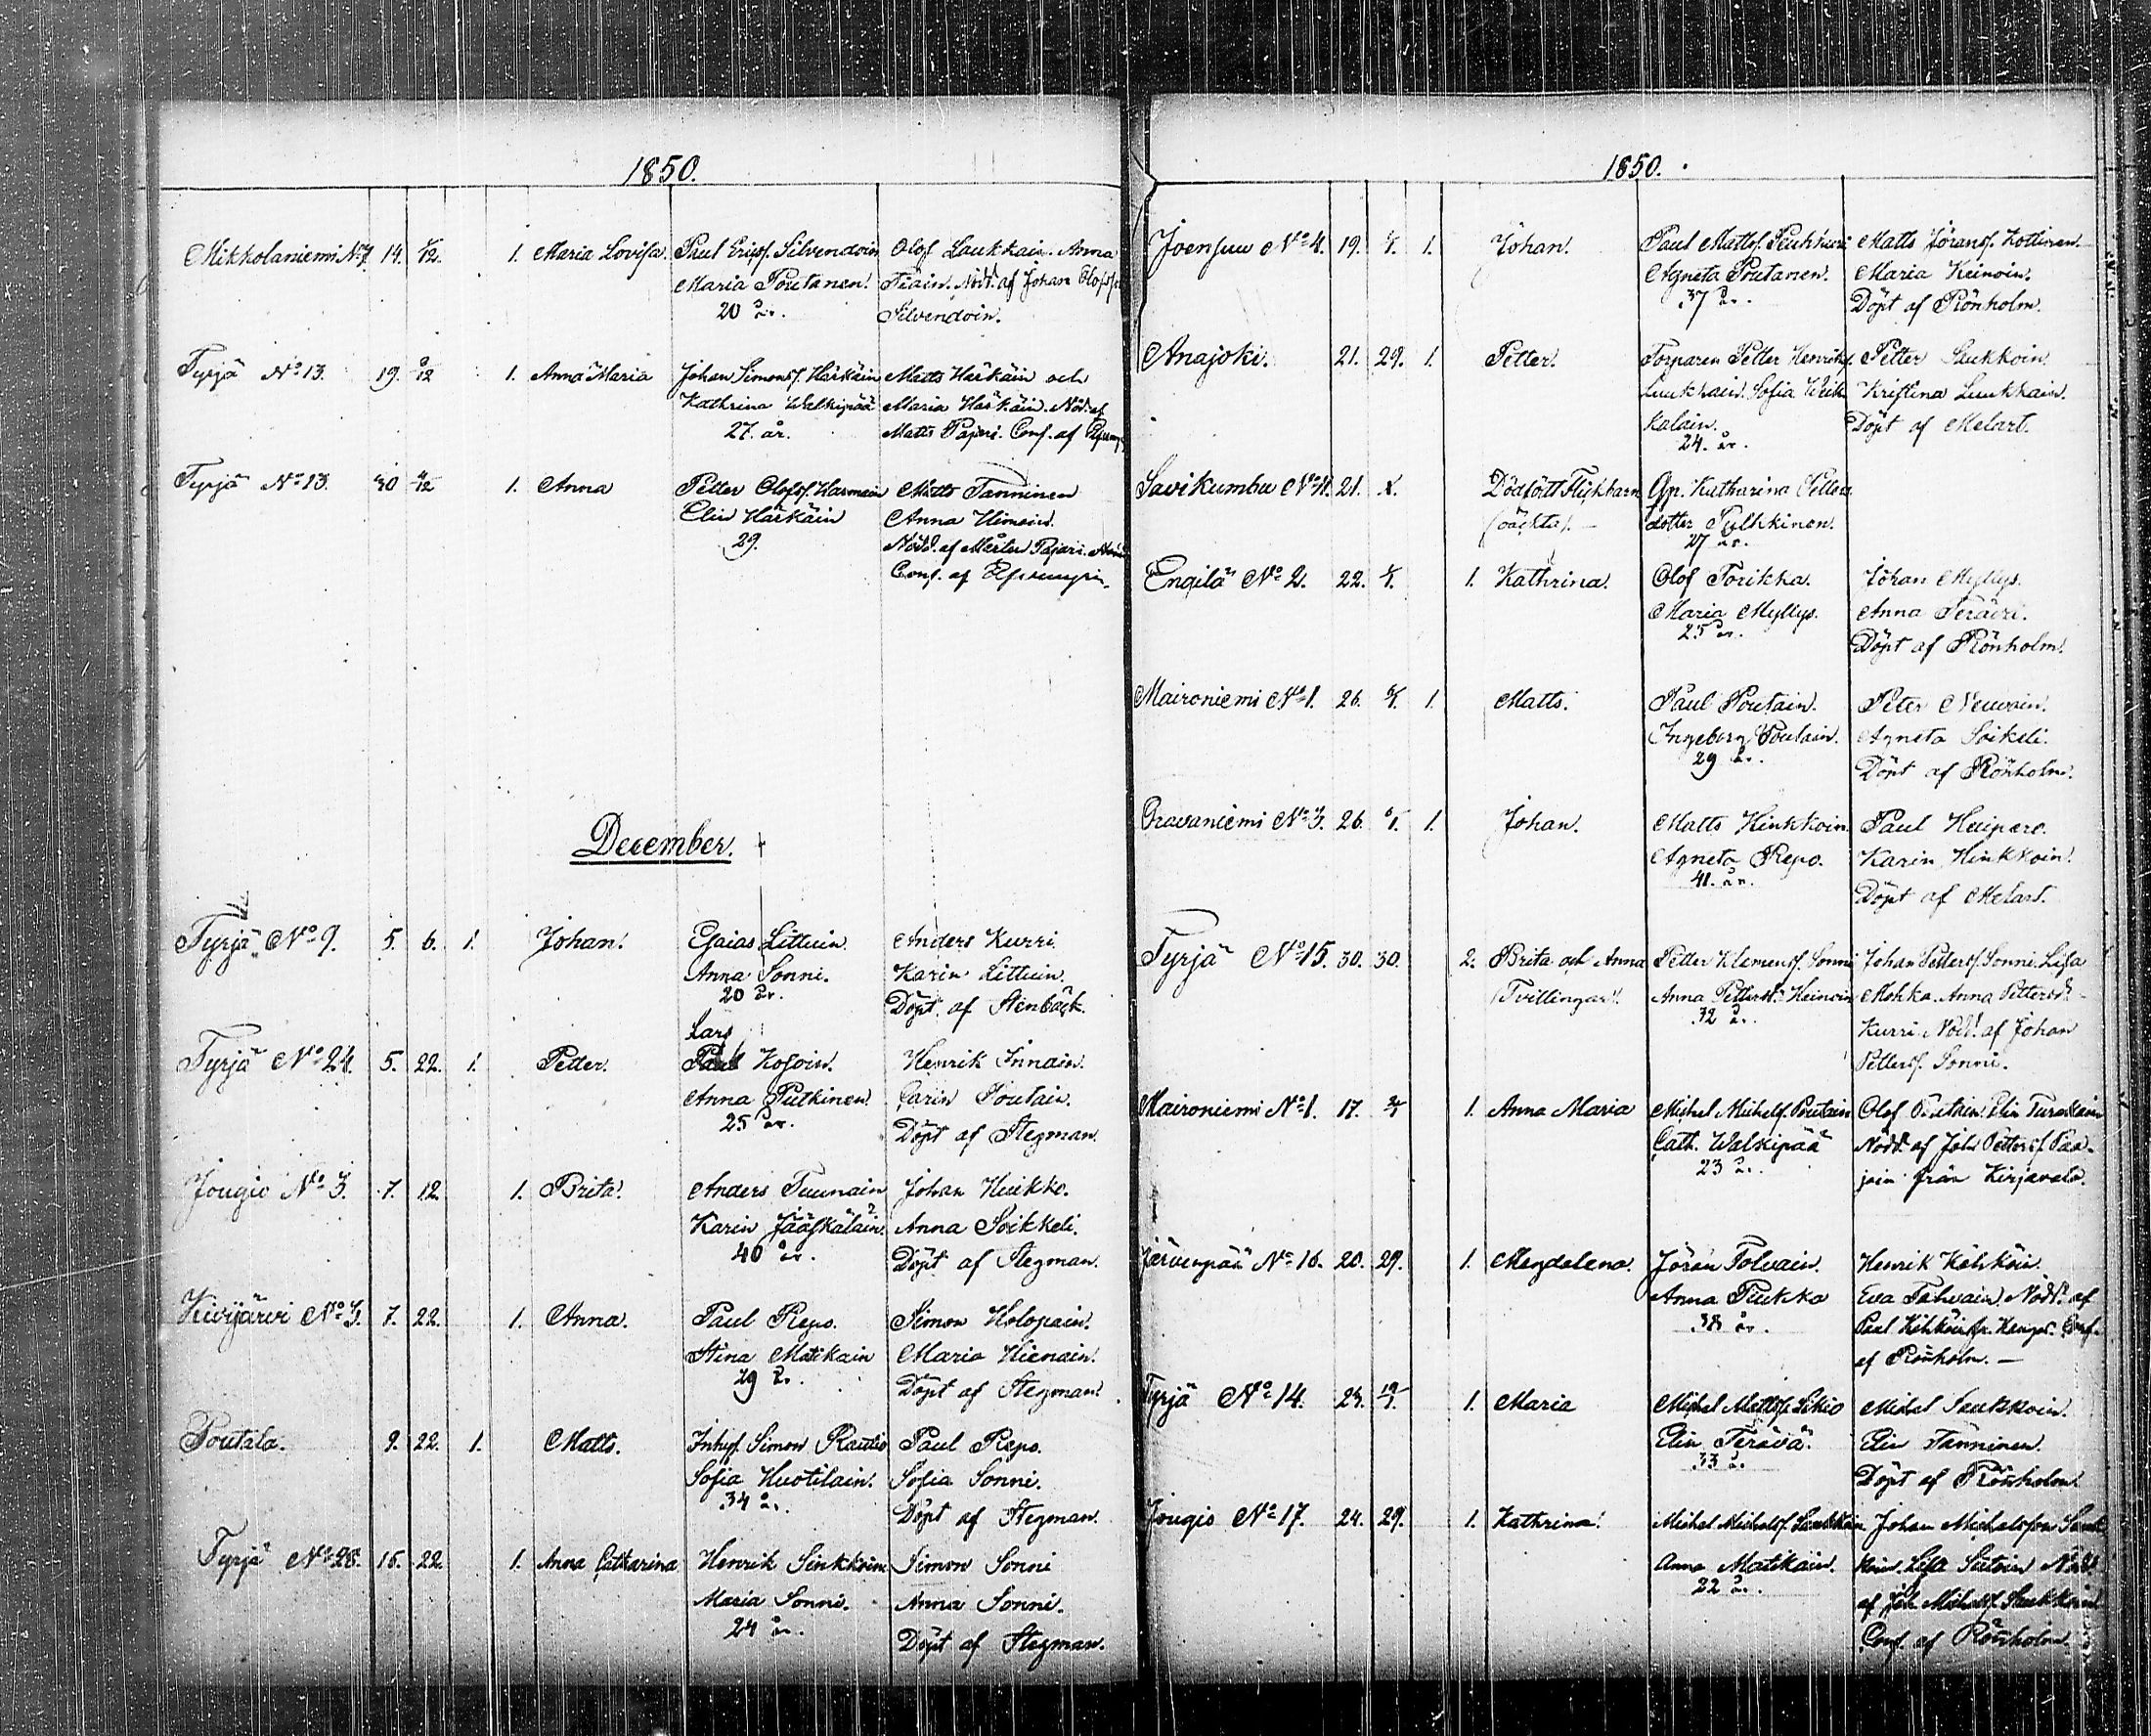 1850.
Mikkolaniemi No 7. 14. 1/12. 1. Maria Lovisa. Paul Ericss. Silvendoin Olof Laukkain. Anna
Maria Poutanen. Nödd. af Johan Olofss.
20 år. Silvendoin.
Tyrjä No 13. 19. 2/12 1. Anna Maria Johan Simonss. Härkäin Matts Härkäin och
Kathrina Walkipää Maria Härkäin. Nöd. af
27. år. Matts Pajari. Conf. af
Tyrjä No 13. 30 4/12 1. Anna Petter Olofss. Matts Tanninen
Elin Härkäin Anna Himoin.
29. Nödd. af Mårten Pajari.
Conf. af
December.
Tyrjä No 9. 5. 6. 1. Johan. Esaias Littuin. Anders Kurri
Anna Sonni. Karin Littuin.
20 år. Döpt af Stenbäck.
Lars
Tyrjä No 24. 5. 22. 1. Petter. Paul Kosoin. Henrik Innain.
Anna Putkinen. Carin Poutain.
25 år. Döpt af Stegman.
Jougio No 3. 7. 12. 1. Brita. Anders Tuunain Johan Huikko.
Karin Jääskäläin. Anna Soikkeli.
40 år. Döpt af Stegman.
Kivijärvi No 3. 7. 22. 1. Anna. Paul Repo. Simon Holopain.
Stina Matikain Maria Hienain.
29 år. Döpt af Stegman.
Poutala. 9. 22. 1. Matts. Inhys. Simon Rautio Paul Repo.
Sofia Huotilain. Sofia Sonni.
34 år. Döpt af Stegman.
Tyrjä No 28. 15. 22. 1. Anna Catharina Henrik Sinkkoin Simon Sonni
Maria Sonni. Anna Sonni.
24 år. Döpt af Stegman.
1850.
Joensuu No 4. 19. 1. Johan. Paul Mattss. Matts Jöranss. Kottinen.
Agneta Poutanen. Maria Keinoin.
37 år. Döpt af Rönholm.
Anajoki. 21. 29. 1. Petter. Torparen Petter Henrikss. Petter Laukkoin.
Luukkain. Sofia Kristina Luukkain.
kalain. Döpt af Melart.
24. år.
Savikumbu No 11. 21. X. Dödfött Flickbarn Gp. Katharina Petters
(oäkta). — dotter Pulkkinen.
27 år.
Engilä No 2. 22. 1. Kathrina. Olof Torikka. Johan Myllys.
Maria Myllys. Anna Teräwi.
25 år. Döpt af Rönholm.
Maironiemi No 1. 26. 6/1. 1. Matts. Paul Poutain. Peter Neuvoin.
Ingeborg Poutain. Agneta Soikeli.
29 år. Döpt af Rönholm.
Oravaniemi No 3. 26. 6/1. 1. Johan. Matts Hinkkoin. Paul Kuipero.
Agneta Repo. Karin Hinkkoin.
41. år. Döpt af Melart.
Tyrjä No 15. 30. 30. 2. Brita och Anna Petter Klemenss. Sonni Johan Petterss. Sonni. Lisa
(Tvillingar). Anna Pettersd. Heinoin Mohka. Anna Pettersd.
32 år. Kurri. Nödd. af Johan
Petterss. Sonni.
Maironiemi No 1. 17. 1. Anna Maria Michel Michelss. Poutain Olof Poutain. Elin
Cath. Walkipää Nödd. af Joh. Petterss. Paa-
23 år. join från Kirjavala.
Järvenpää No 16. 20. 29. 1. Magdalena. Jöran Tolvain. Henrik Kähköin.
Anna Pukko Eva Tolvain. Nödd. af
38 år. Paul Kähköin fr. Conf.
af Rönholm. —
Tyrjä No 14. 23. 19/1 1. Maria Michel Mattss. Michel Saukkoin.
Elin Terävä. Elin Tanninen.
33 år. Döpt af Rönholm.
Jougio No 17. 24. 29. 1. Kathrina. Michel Michelss. Saukkoin Johan Michelsson Sauk
Anna Matikain. koin. Lisa Nödd.
22 år. af Joh. Michelss. Saukkoin
Conf. af Rönholm.